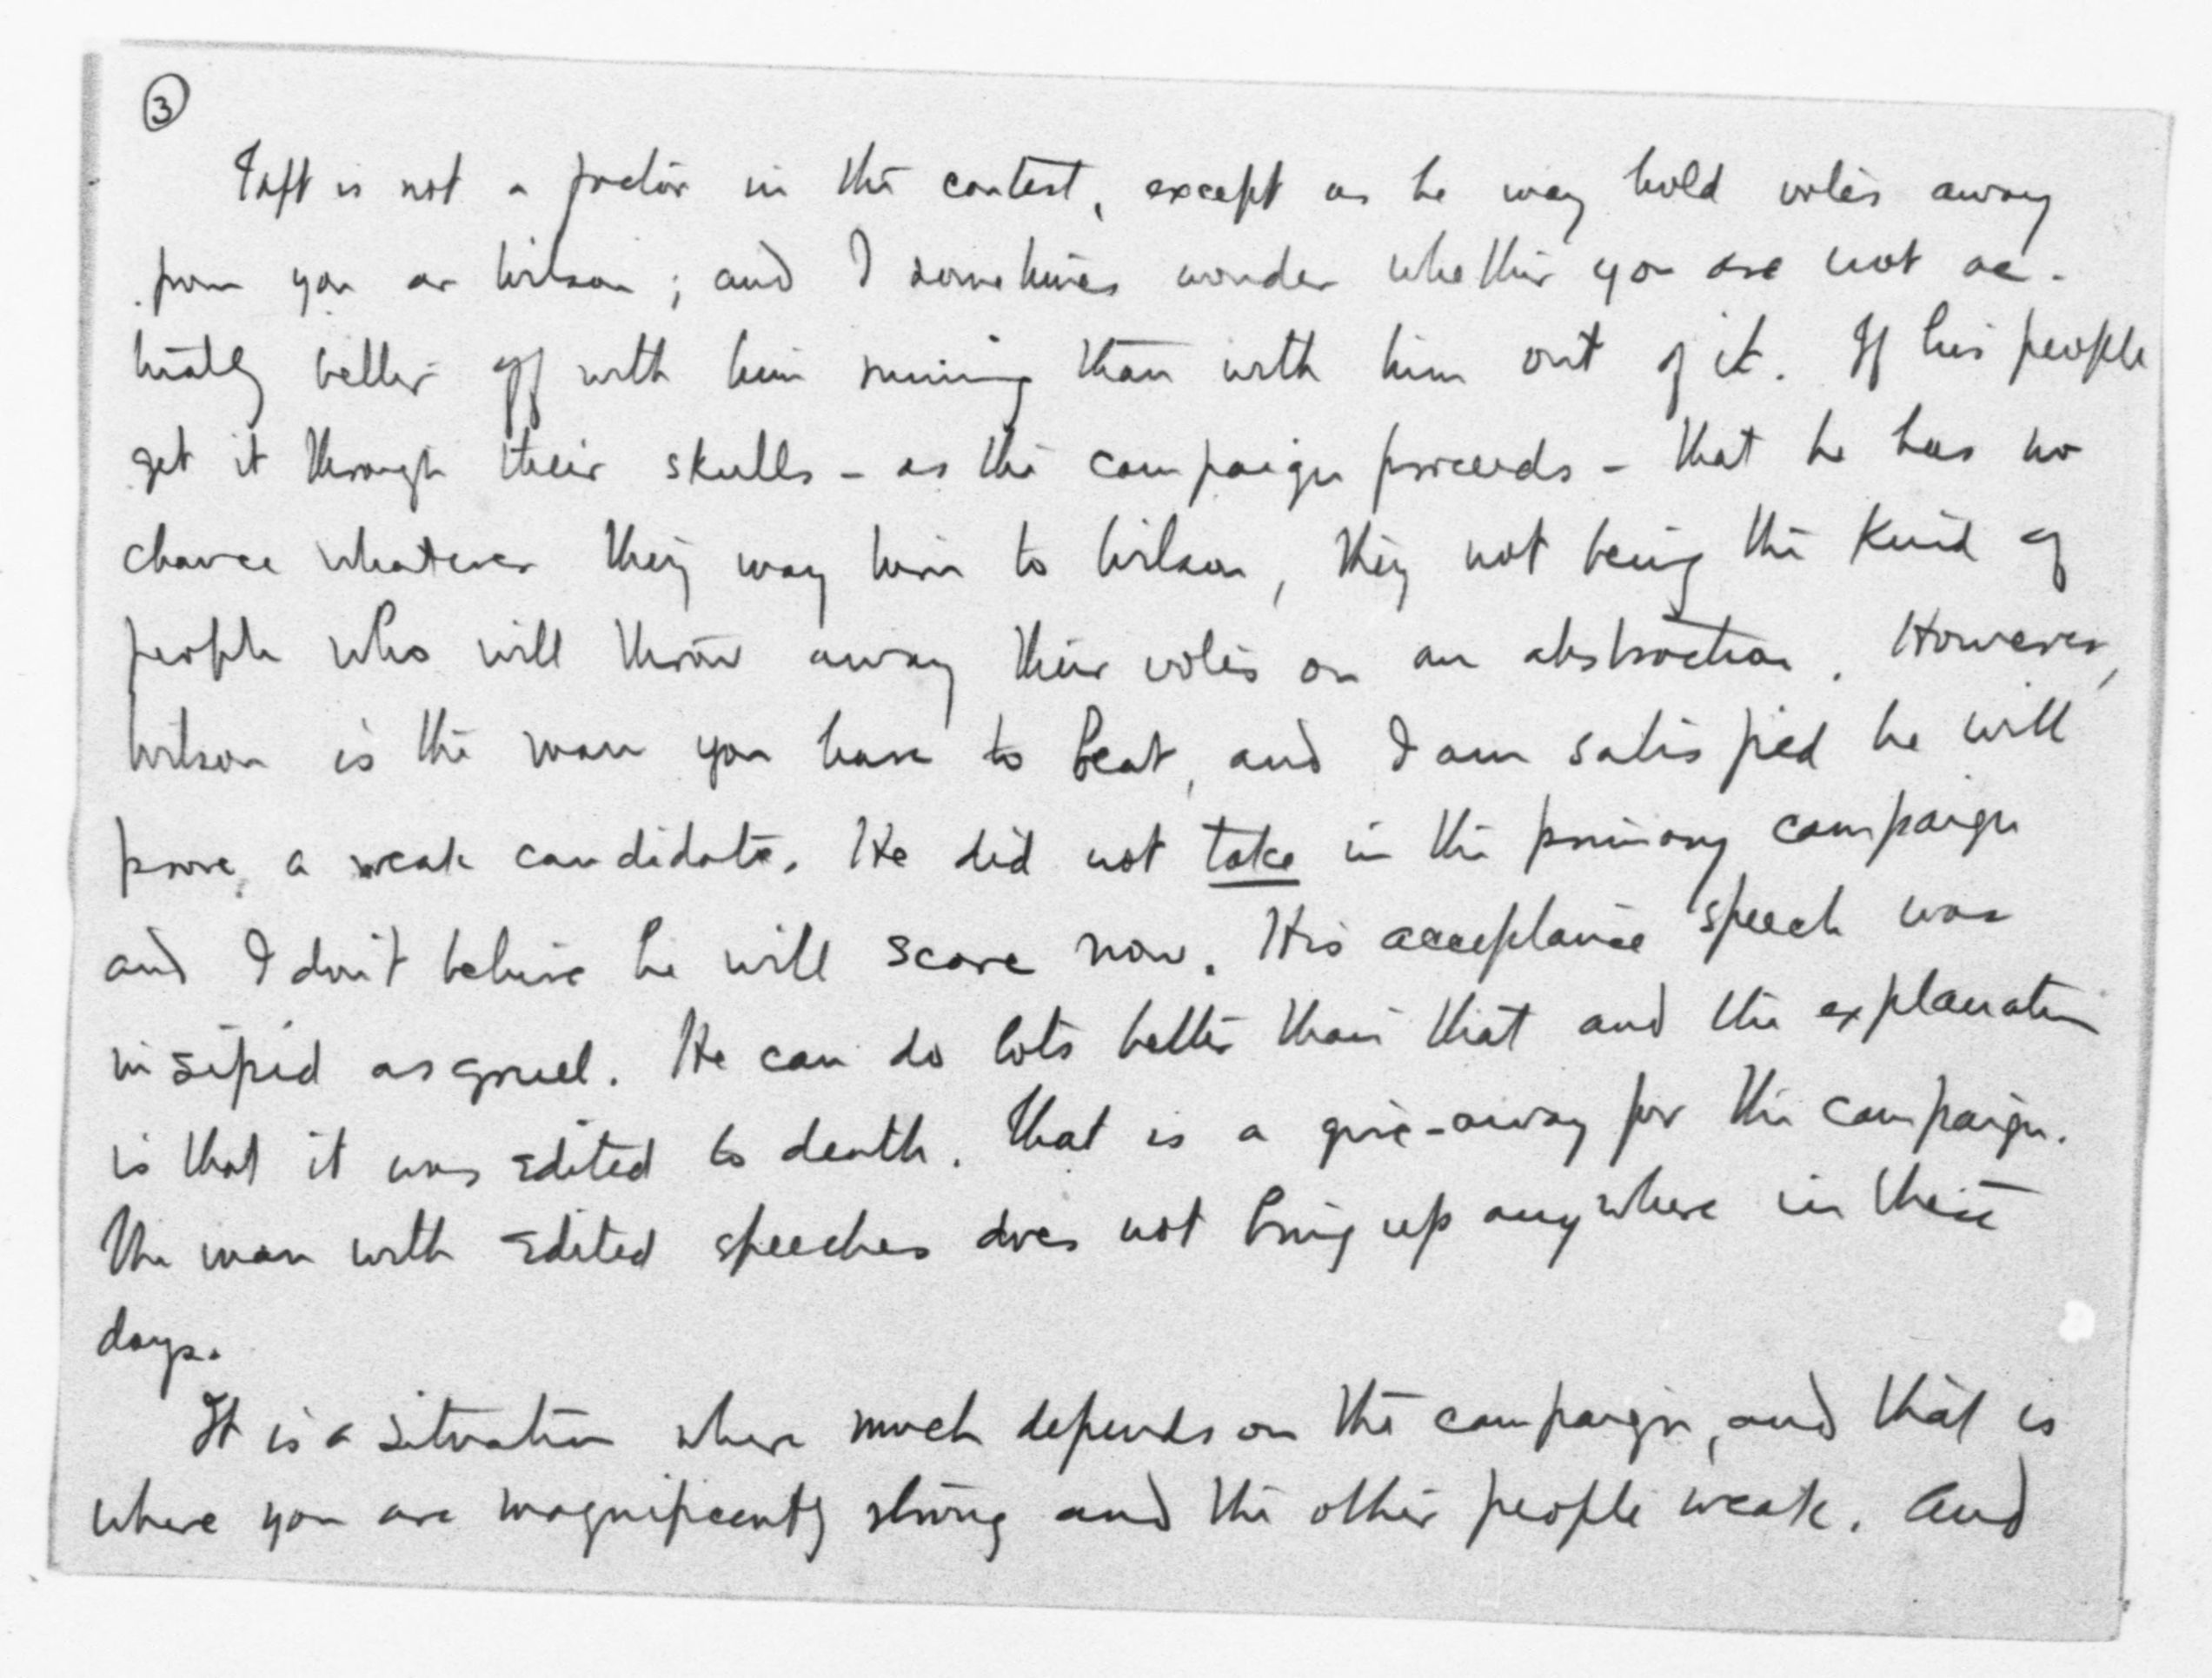 3
Taft is not a factor in the contest, except as he may hold votes away
from you or Wilson; and I sometimes wonder whether you are not ac-
tually better off with him running than with him out of it. If his people
get it through their skulls – as the campaign proceeds – that he has no
chance whatever they may turn to Wilson, they not being the kind of
people who will throw away their votes on an abstraction. However,
Wilson is the man you have to beat, and I am satisfied he will
prove a weak candidate. He did not take in the primary campaign
and I don't believe he will score now. His acceptance speech was
insipid as gruel. He can do lots better than that and the explanation
is that it was edited to death. That is a give-away for the campaign.
The man with edited speeches does not bring up anywhere in these
days.
It is a situation where much depends on the campaign, and that is
where you are magnificently strong and the other people weak. And